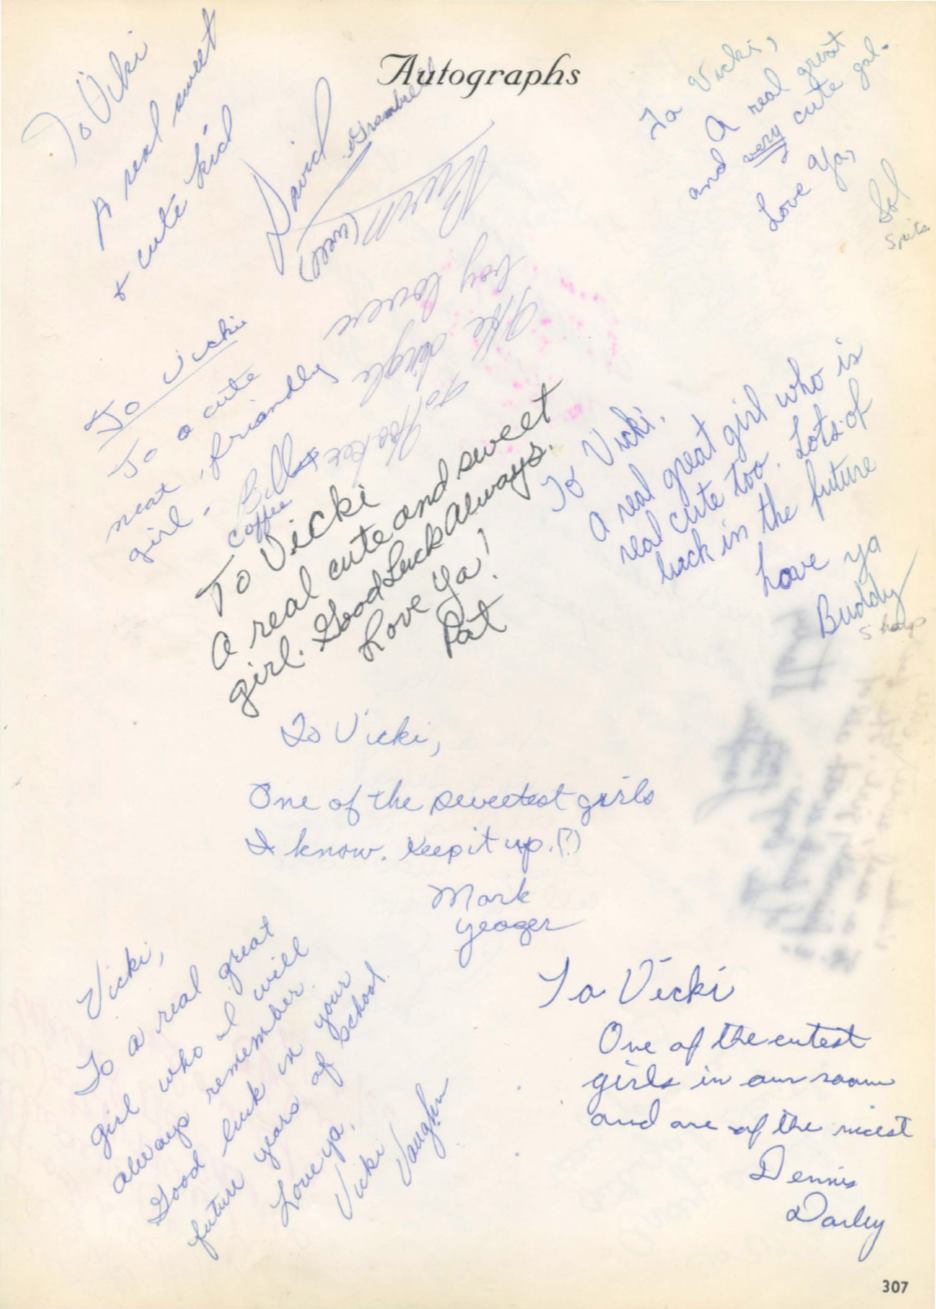 Autographs
To Viki
A real sweet
& cute kid
David
To Vicki,
A real great
and very cute gal.
Love Ya,
Sol
To Vicki
To a cute
neat, friendly
girl.
Bill
coffee
boy lover
To Vicki
A real cute and sweet
girl. Good Luck Always.
Love Ya!
Pat
To Vicki,
A real great girl who is
real cute too. Lots of
luck in the future
Love ya
Buddy
Sharp
To Vicki,
One of the sweetest girls
I know. Keep it up. (?)
Mark
Yeager
Vicki,
To a real great
girl who I will
always remember.
Good luck in your
future years of school
Love ya,
Vicki Vaughn
To Vicki
One of the cutest
girls in our room
and one of the nicest
Dennis
Darley
307